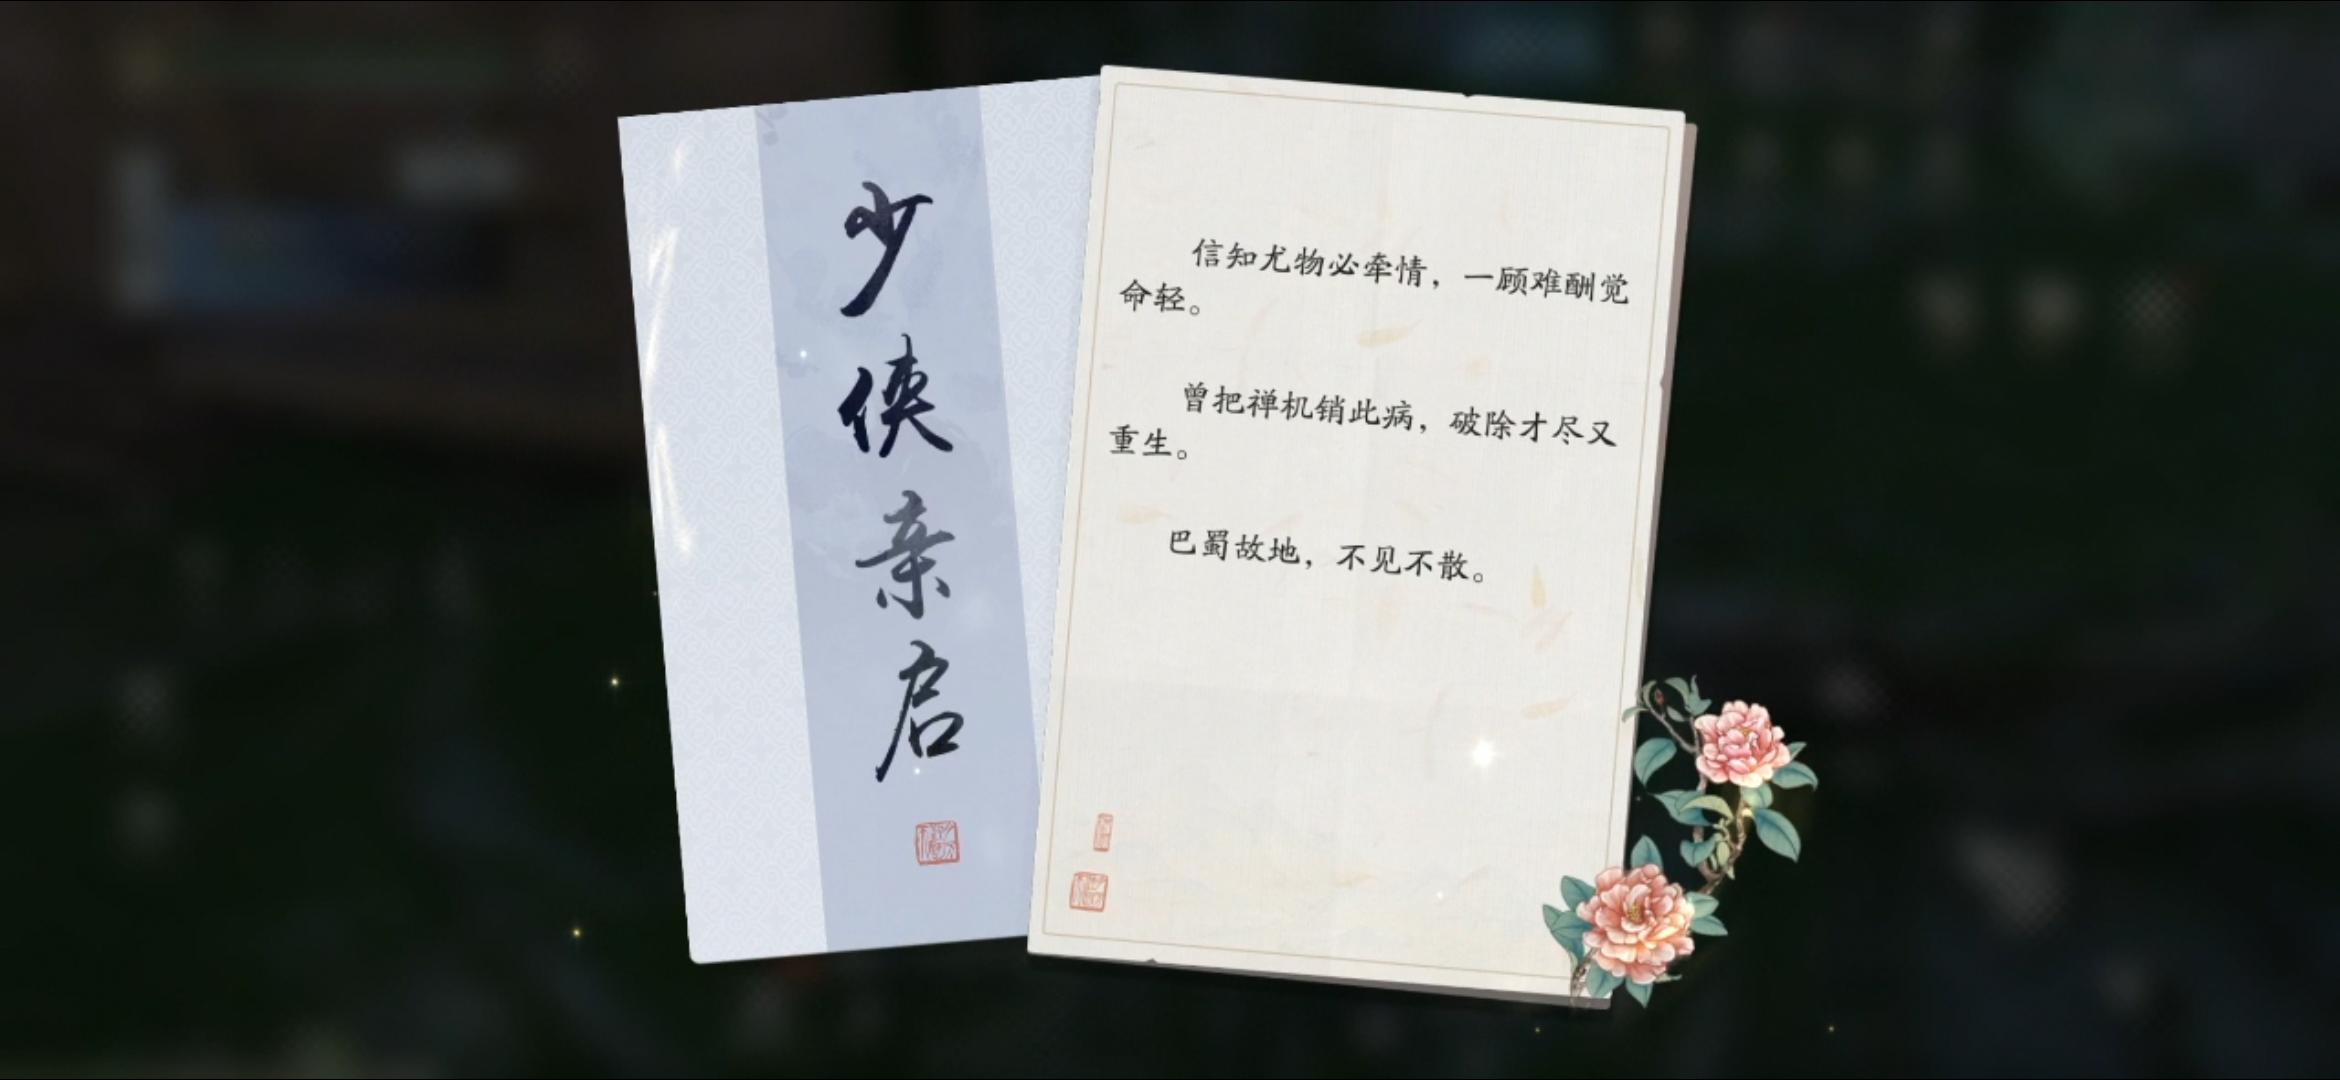 少侠亲启
信知尤物必牵情，一顾难酬觉
命轻。
曾把禅机销此病，破除才尽又
重生。
巴蜀故地，不见不散。